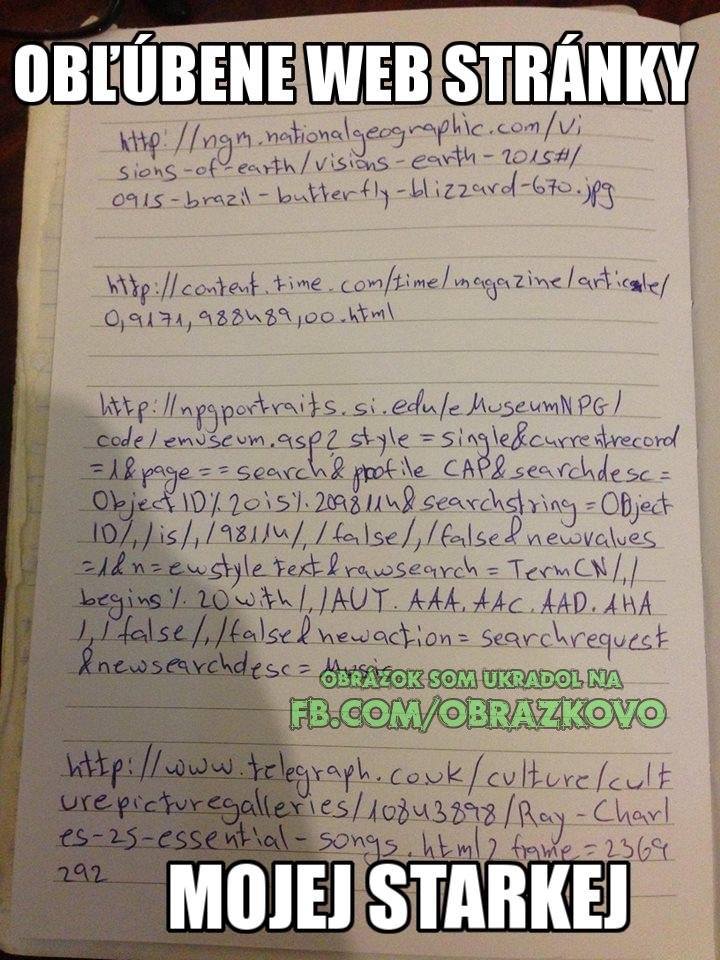 OBĽÚBENE WEB STRÁNKY
http://ngm.nationalgeographic.com/vi
sions-of-earth/visions-earth-2015#/
0915-brazil-butterfly-blizzard-670.jpg
http://content.time.com/time/magazine/article/
0,9171,988489,00.html
http://npgportraits.si.edu/eMuseumNPG/
code/emuseum.asp?style=single&currentrecord
=1&page==search&profile CAP&searchdesc=
Object ID%20is%2098114&searchstring=Object
ID/,/is/,/98114/,/false/,/false&newvalues
=1&n=ewstyle text&rawsearch=TermCN/,/
begins%20with/,/AUT.AAA.AAC.AAD.AHA
/,/false/,/false&newaction=searchrequest
&newsearchdesc=Music
OBRÁZOK SOM UKRADOL NA
FB.COM/OBRAZKOVO
http://www.telegraph.co.uk/culture/cult
urepicturegalleries/10843898/Ray-Charl
es-25-essential-songs.html?frame=2369
292
MOJEJ STARKEJ